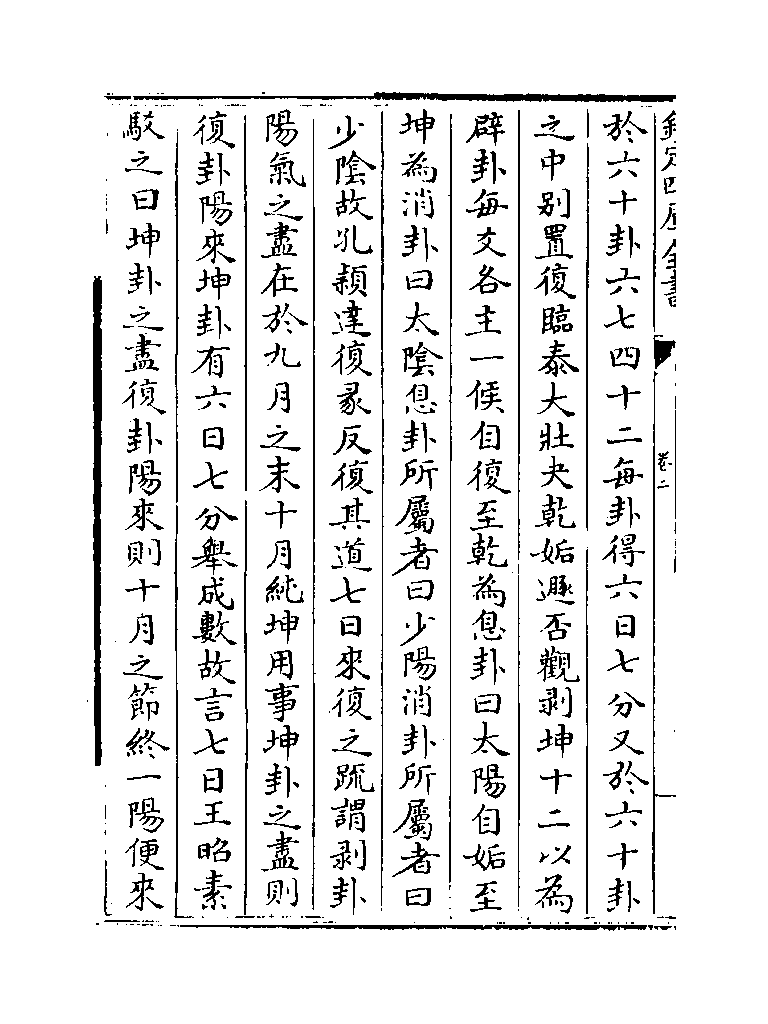 欽定四庫全書
卷二
於六十卦六七四十二每卦得六日七分又於六十卦
之中别置復臨泰大壯夬乾姤遯否觀剥坤十二以為
辟卦每爻各主一候自復至乾為息卦曰太陽自姤至
坤為消卦曰太陰息卦所屬者曰少陽消卦所屬者曰
少陰故孔頴達復彖反復其道七日來復之䟽謂剥卦
陽氣之盡在於九月之末十月純坤用事坤卦之盡則
復卦陽來坤卦有六日七分舉成數故言七日王昭素
駁之曰坤卦之盡復卦陽來則十月之節終一陽便來